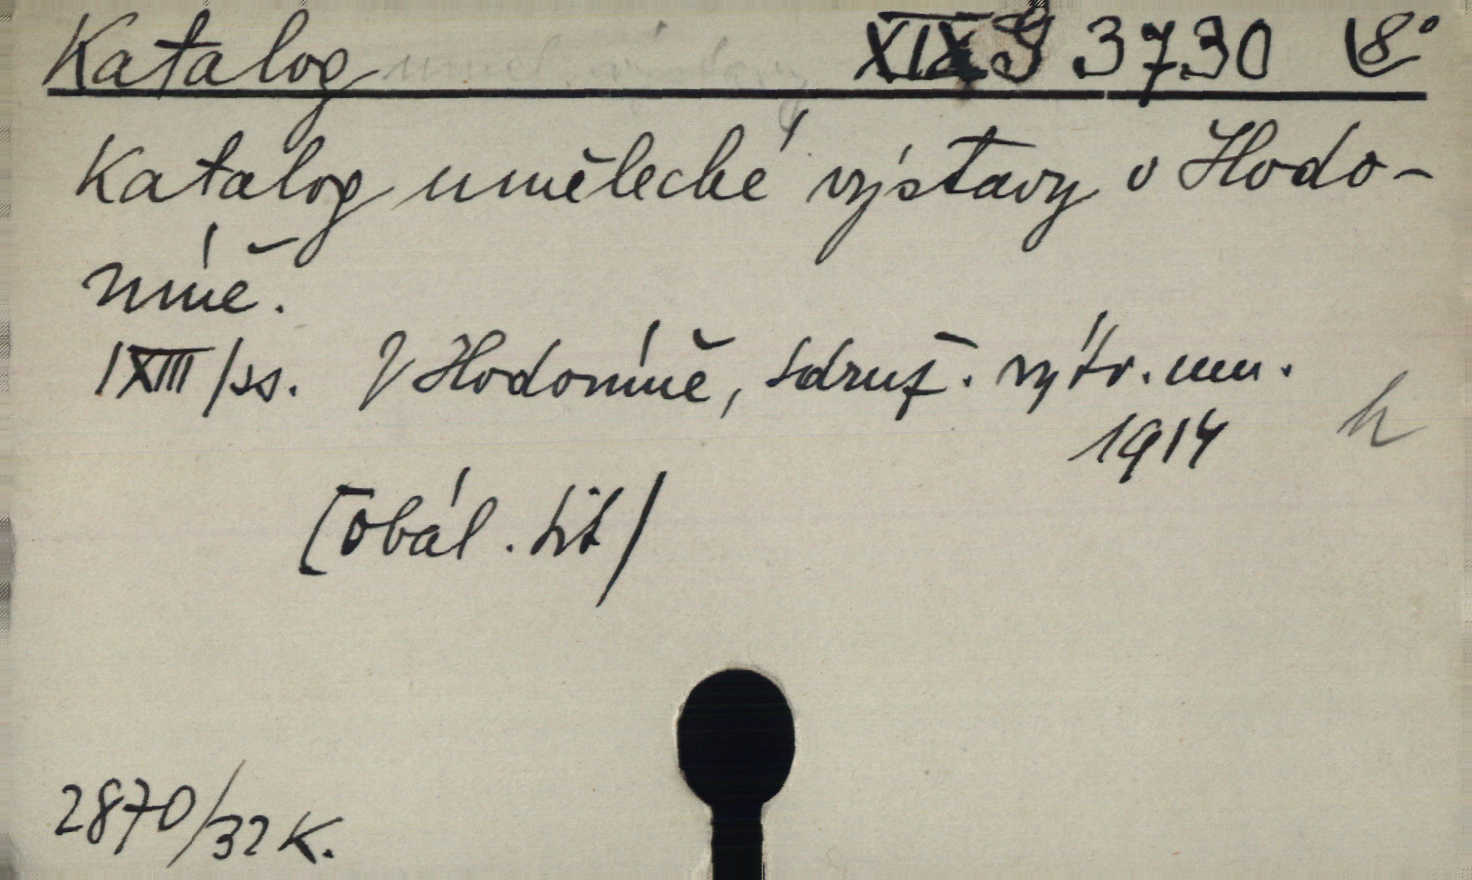 Katalog uměl. výstavy XIX J 3730 8°
Katalog umělecké výstavy v Hodo-
níně.
/XIII/ ss. V Hodoníně, sdruž. výtv. um.
1914 h
[obál. tit/
2870/32 K.